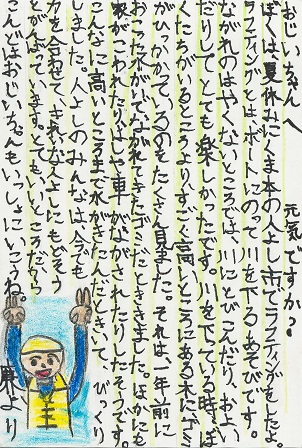 おじいちゃんへ 元気ですか?
ぼくは夏休みにくま本の人よし市でラフティングをしたよ。
ラフティングとは、ボートにのって川を下るあそびです。
ながれのはやくないところでは、川にとびこんだり、およい
だりしてとても楽しかったです。川を下っている時、ぼ
くたちがいるところより、すごく高いところにある木にゴミ
がひっかかっているのをたくさん見ました。それは、一年前に
おこった水がいでながれてきたゴミだとききました。ほかにも
家がこわれたり、はしや車がながされたりしたそうです。
こんなに高いところまで水がきたんだときいて、びっくり
しました。人よしのみんなは、今でも
力を合わせて、きれいな人よしにもどそう
とがんばっています。とてもいいところだから
こんどはおじいちゃんもいっしょにいこうね。
より